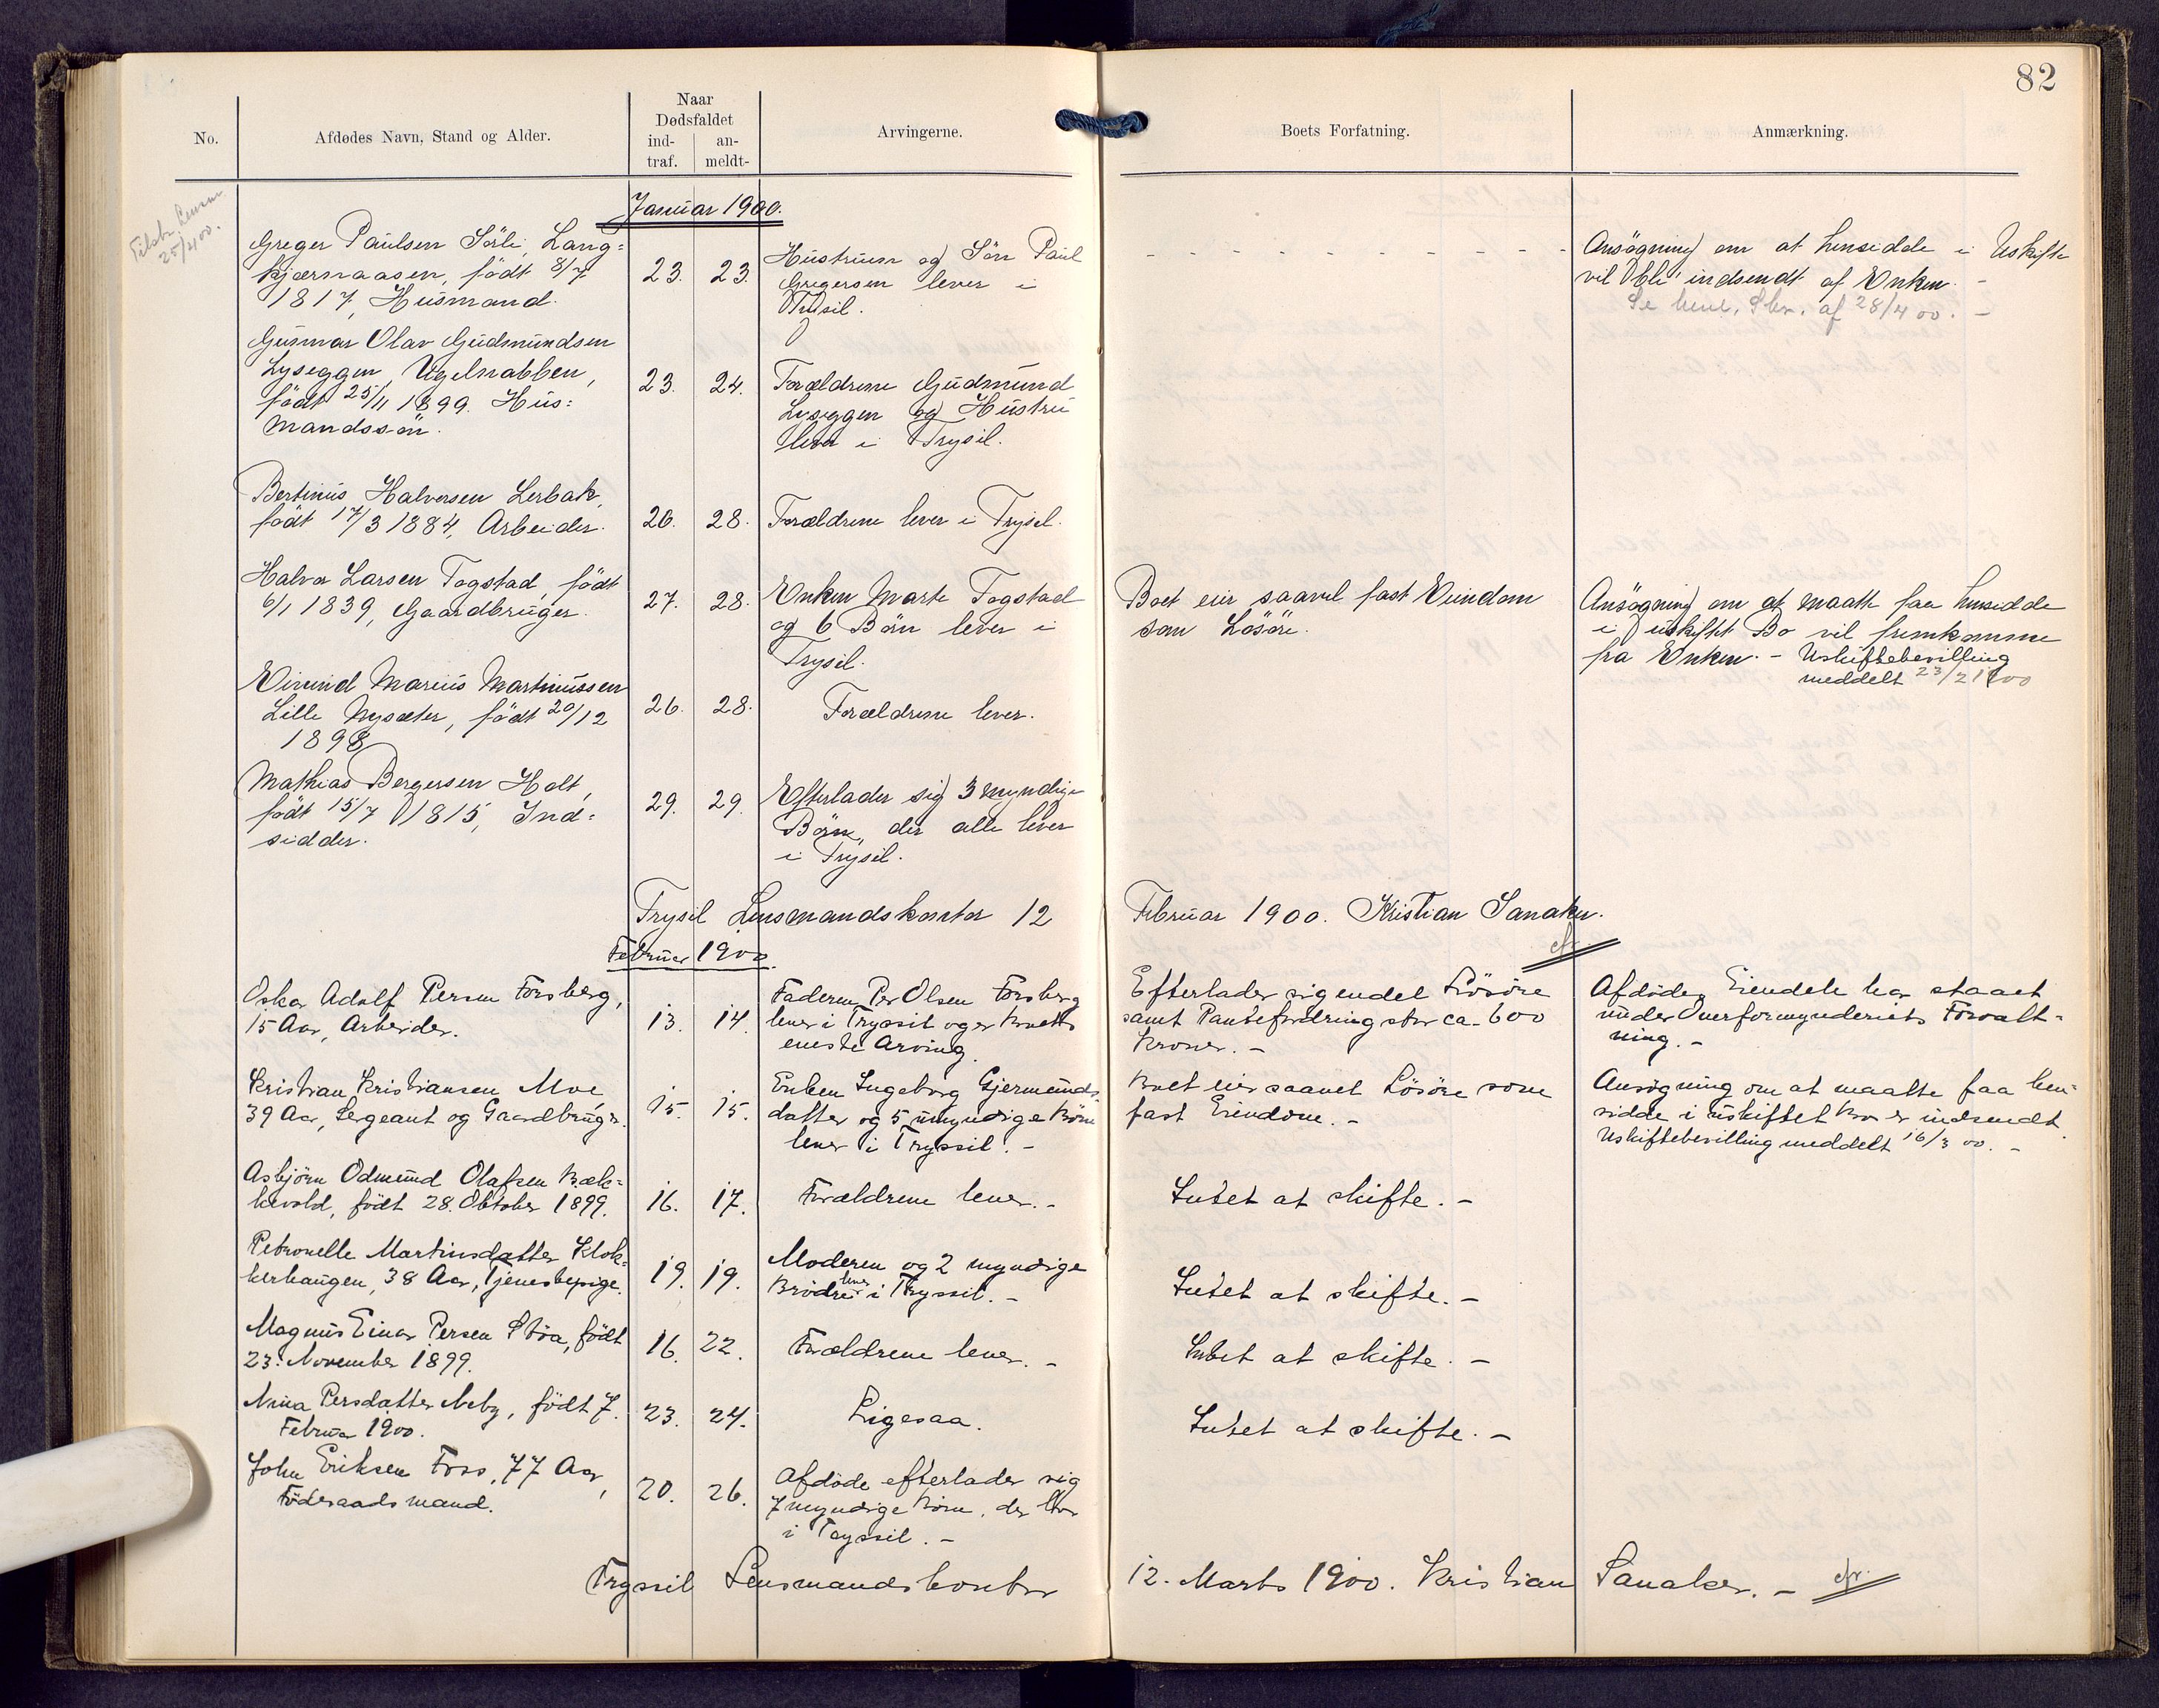 82
No.
Afdødes Navn, Stand og Alder.
Naar
Dødsfaldet
ind-
traf.
an-
meldt-
Arvingerne.
Boets Forfatning.
Anmærkning.
Januar 1900.
25/4 00.
Greger Paulsen Sörli, Lang=
kjærnaasen, født 8/7
1817, Husmand.
23. 23.
Hustruen og Sön Paul
Gregersen lever i
Trysil.
Ansögning om at hensidde i Uskifte
vil bli indsendt af Enken. -
Se henl. Skr. af 28/4 00. -
Gunnar Olav Gudmundsen
Lyseggen, Ugelnabben,
födt 25/11 1899. Hus=
mandssön.
23. 24.
Forældrene Gudmund
Lyseggen og Hustru
lever i Trysil.
Bertinus Halvorsen Lerbak,
födt 17/3 1884, Arbeider.
26. 28.
Forældrene lever i Trysil.
Halvor Larsen Togstad, födt
6/1 1839, Gaardbruger.
27. 28.
Enken Marte Togstad
og 6 Börn lever i
Trysil.
Boet eier saavel fast Eiendom
som Lösöre.
Ansögning om at maatte faa hensidde
i uskiftet Bo vil fremkomme
fra Enken. - Uskiftebevilling
meddelt 23/2 1900
Eivind Marius Martinussen
Lille Nysæter, födt 20/12
1898
26. 28.
Forældrene lever.
Mathias Bergersen Holt,
födt 15/7 1815, Ind=
sidder.
29. 29.
Efterlader sig 3 myndige
Börn, der alle lever
i Trysil.
Trysil Lensmandskontor 12 Februar 1900. Kristian Sanaker.
Februar 1900.
Oskar Adolf Persen Forsberg,
15 Aar, Arbeider.
13. 14.
Faderen Per Olsen Forsberg
lever i Tryssil og er Boets
eneste Arving.
Efterlader sig endel Lösöre
samt Pantefordring stor ca. 600
Kroner. -
Afdödes Eiendele har staaet
under Overformynderiets Forvalt=
ning. -
Kristian Kristiansen Moe,
39 Aar, Sergeant og Gaardbruger.
15. 15.
Enken Ingeborg Gjermunds-
datter og 5 umyndige Börn
lever i Tryssil. -
Boet eier saavel Lösöre som
fast Eiendom. -
Ansögning om at maatte faa hen=
sidde i uskiftet Bo er indsendt.
Uskiftebevilling meddelt 16/3 00. -
Asbjörn Odmund Olafsen Bæk=
kevold, födt 28. Oktober 1899.
16. 17.
Forældrene lever. -
Intet at skifte. -
Petronelle Martinsdatter Klok=
kerhaugen, 38 Aar, Tjenestepige.
19. 19.
Moderen og 2 myndige
Brödre lever i Tryssil. -
Intet at skifte. -
Magnus Einar Persen Stöa, födt
23. November 1899.
16. 22.
Forældrene lever. -
Intet at skifte. -
Nina Persdatter Neby, födt 7.
Februar 1900.
23. 24.
Ligesaa.
Intet at skifte. -
John Eriksen Foss, 77 Aar,
Föderaadsmand.
20. 26.
Afdöde efterlader sig
7 myndige Börn, der bor
i Tryssil. -
Tryssil Lensmandskontor 12. Marts 1900. Kristian Sanaker. -